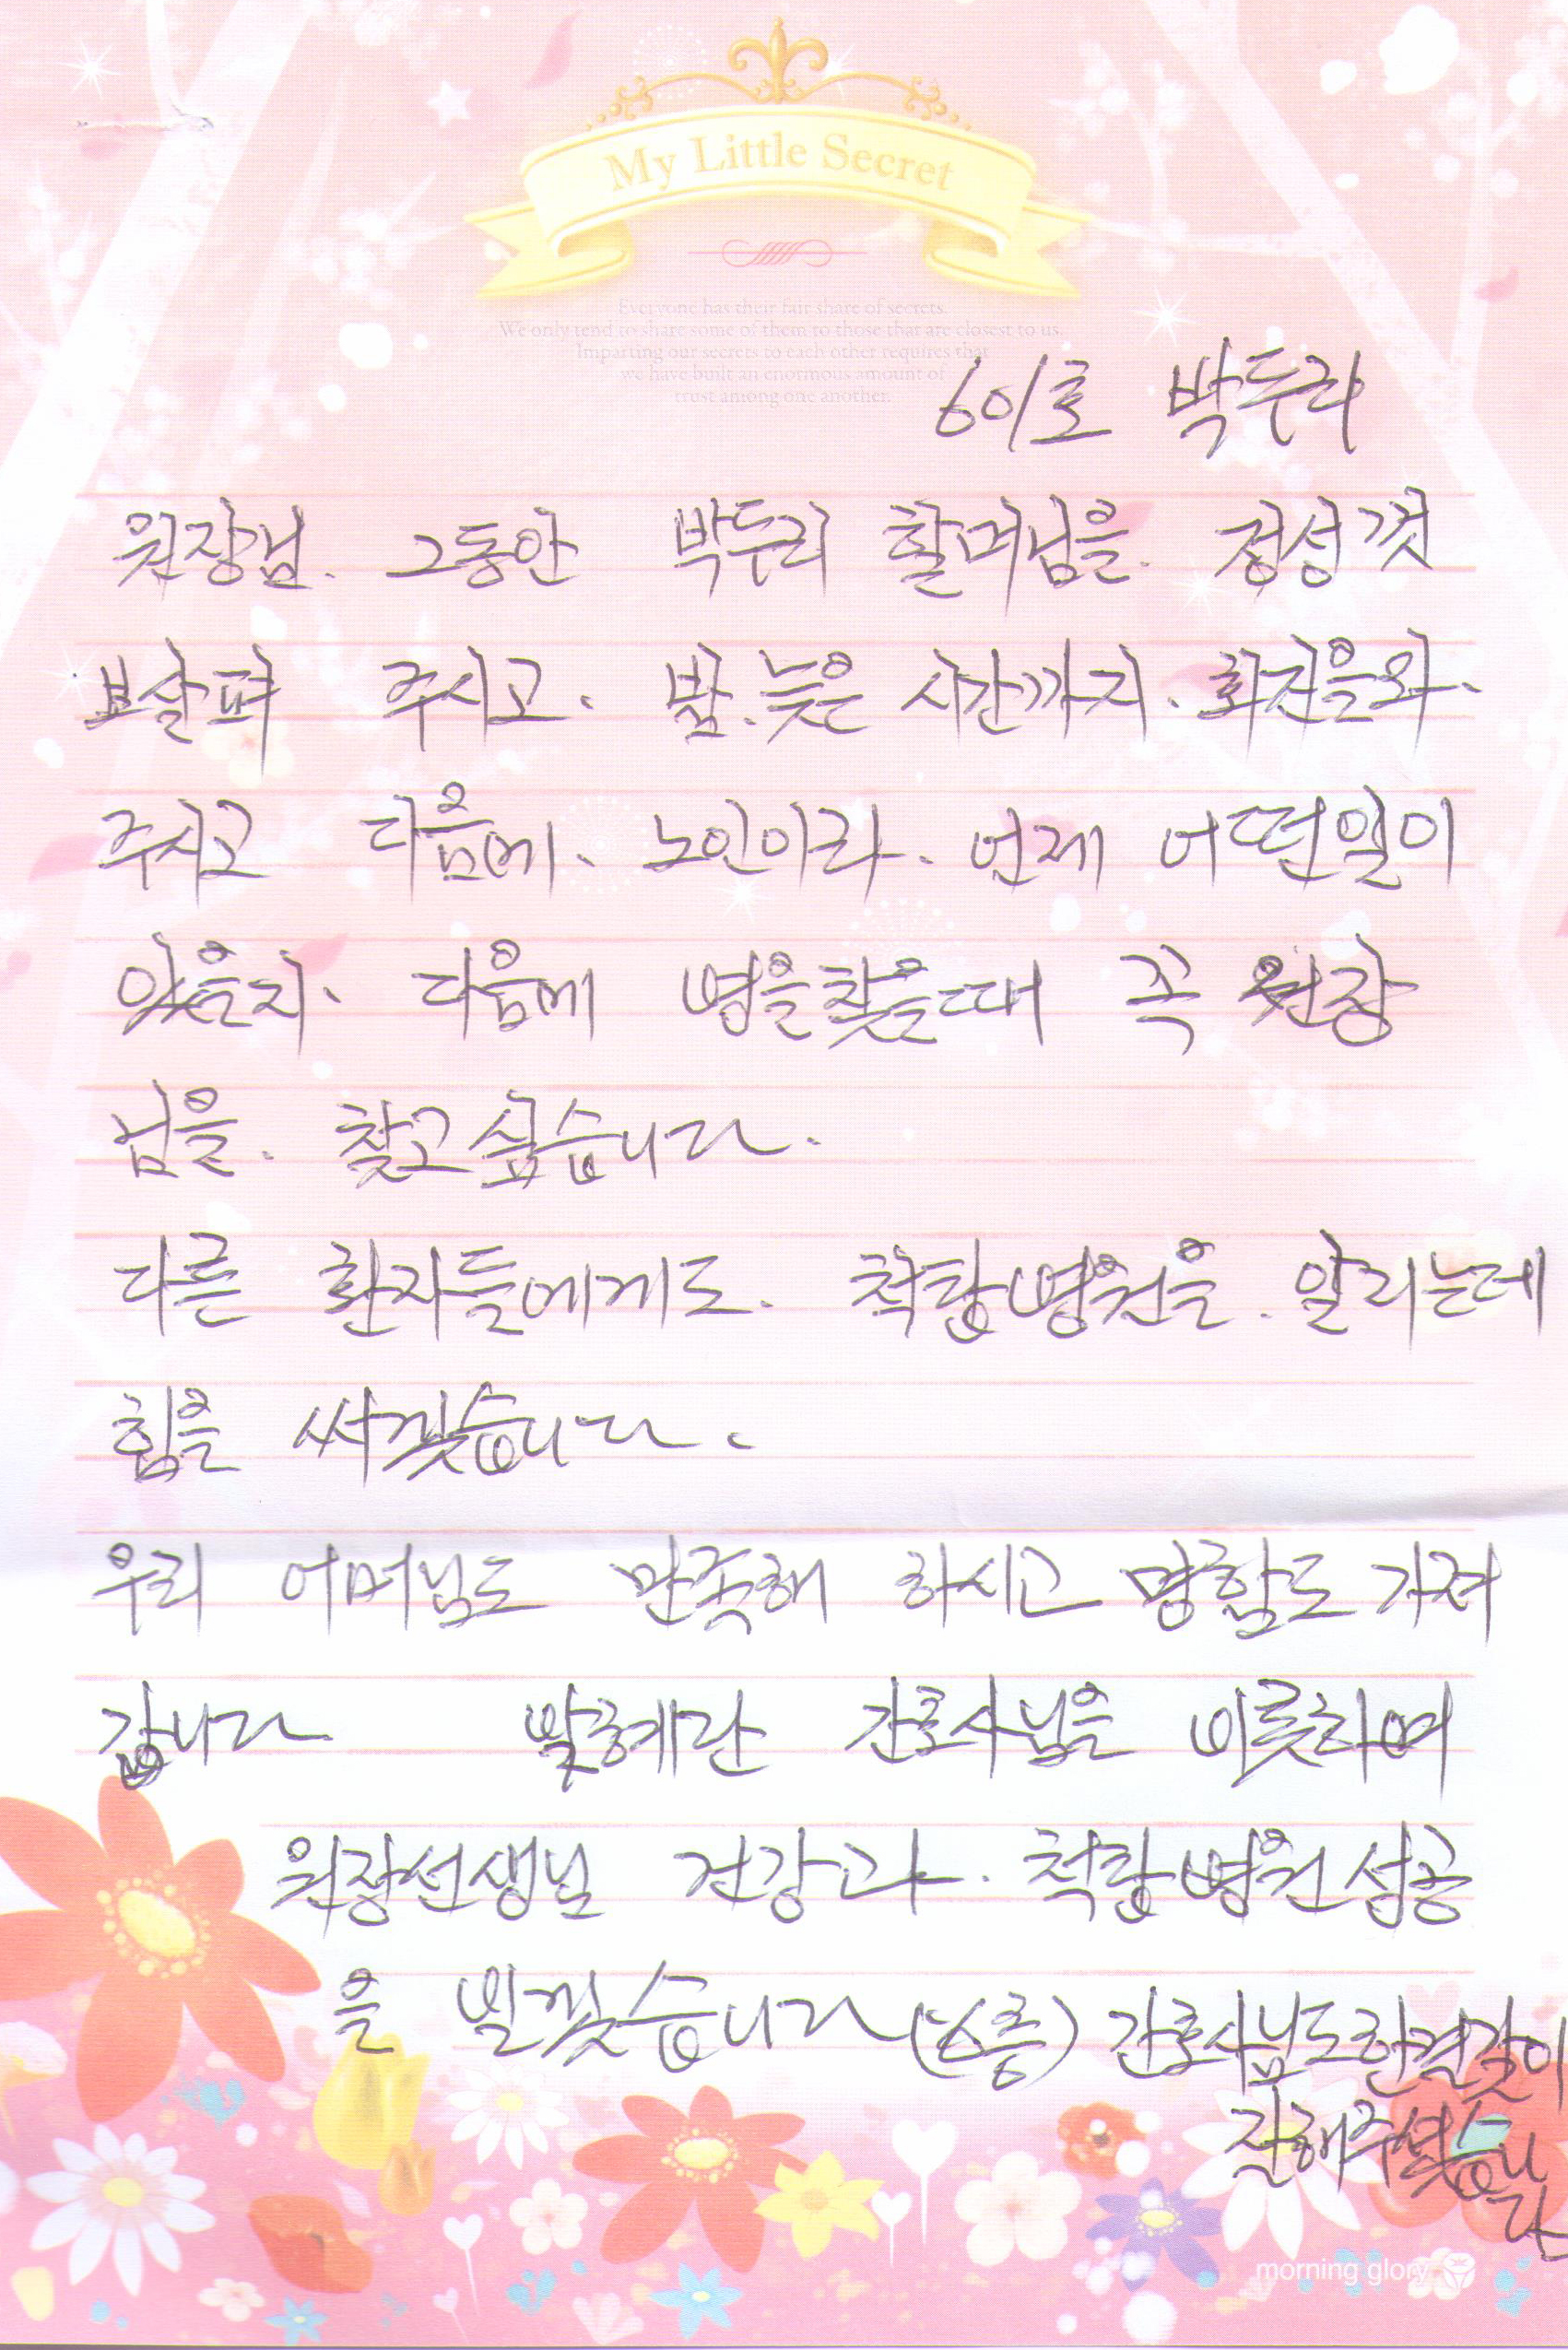 My Little Secret
Everyone has their fair share of secrets.
We only tend to share some of them to those that are closest to us.
Imparting our secrets to each other requires that
we have built an enormous amount of
trust among one another.
601호 박두리
원장님. 그동안 박두리 할머님을. 정성껏
보살펴 주시고. 밤.늦은 시간까지. 회진을와.
주시고 다음에. 노인이라. 언제 어떤일이
있을지. 다음에 병을찾을때 꼭 원장
님을. 찾고싶습니다.
다른 환자들에게도. 척탑병원을. 알리는데
힘을 써겠습니다.
우리 어머님도 만족해 하시고 명함도 가져
갑니다 간호사님을 비롯하여
원장선생님 건강과. 척탑병원 성공
을 빌겠습니다 (6층) 간호사님도한결같이
잘해주셧습니
다
morning glory